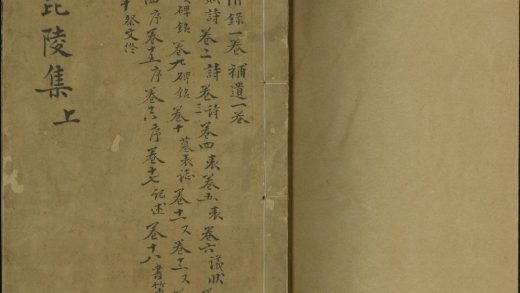 錄一卷 補遺一卷
詩卷二詩卷三詩卷四表卷五表卷六議狀
碑銘卷九碑銘卷十墓表誌卷十一又卷十二又
四序卷十五序卷十六序卷十七記述卷十八書
十祭文
毘陵集上